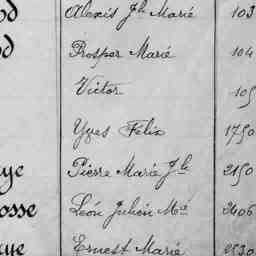 od Alexis Jh Marie 103
od Prosper Marie 104
Victor 105
Yves Félix 1750
aye Pierre Marie Jh 2150
osse Léon Julien Mie 2406
aye Ernest Marie 2530